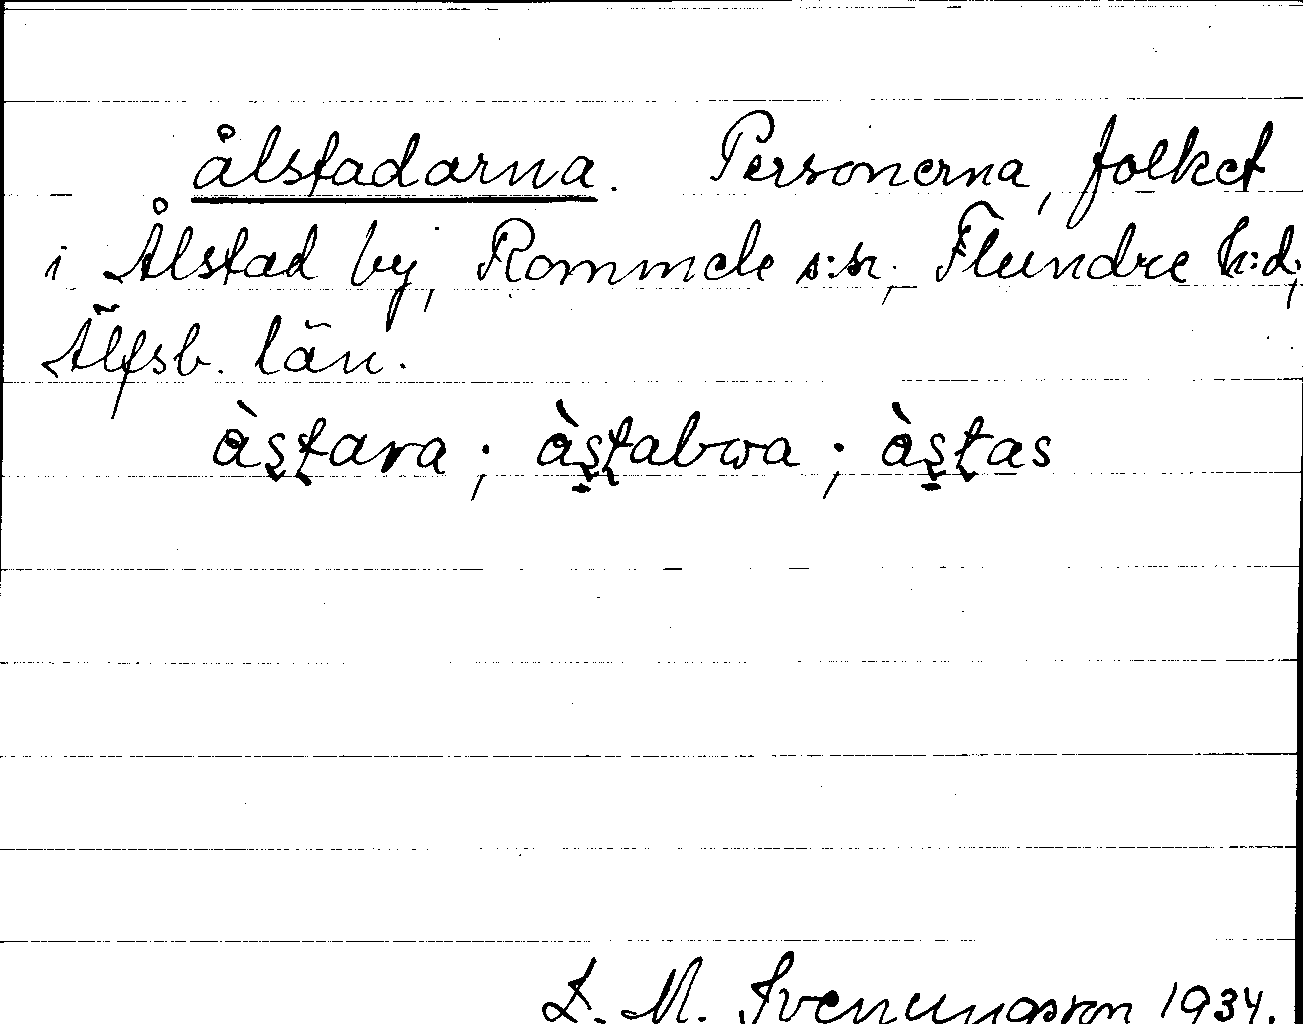 ålstadarna. Personerna, folket
i Ålstad by, Rommele s:n, Flundre h:d,
Älfsb. län.
àşţara; àşţabωa; àşţas
L. M. Svenungsson 1934.